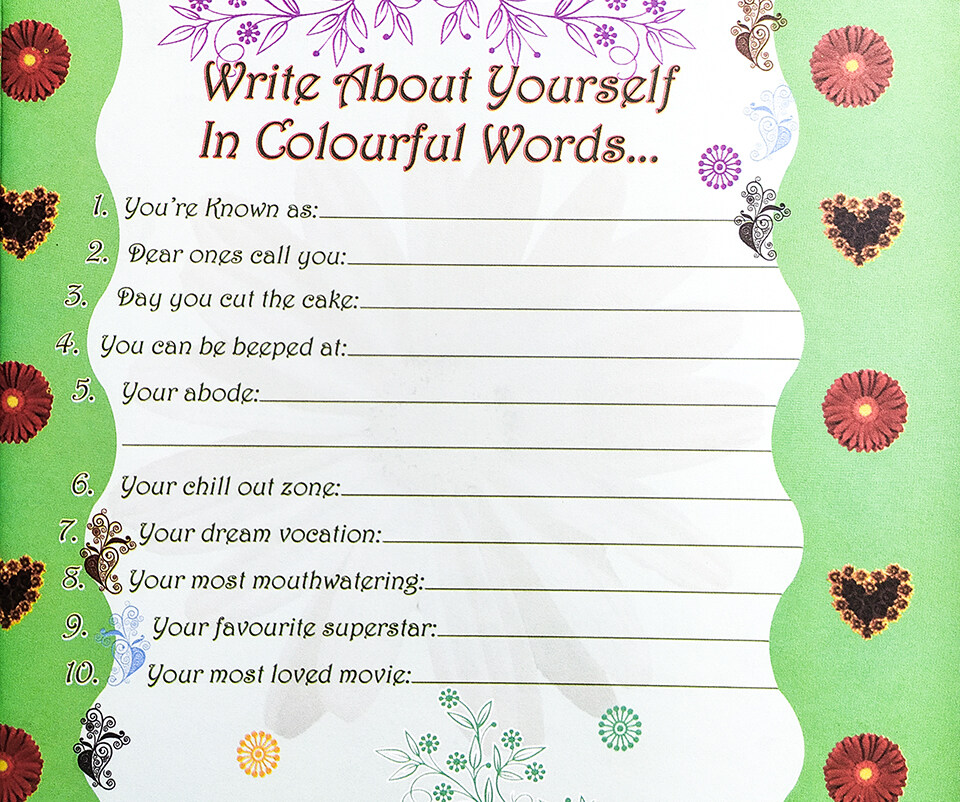 Write About Yourself
In Colourful Words...
1. You're Known as:
2. Dear ones call you:
3. Day you cut the cake:
4. You can be beeped at:
5. Your abode:
6. Your chill out zone:
7. Your dream vocation:
8. Your most mouthwatering:
9. Your favourite superstar:
10. Your most loved movie: